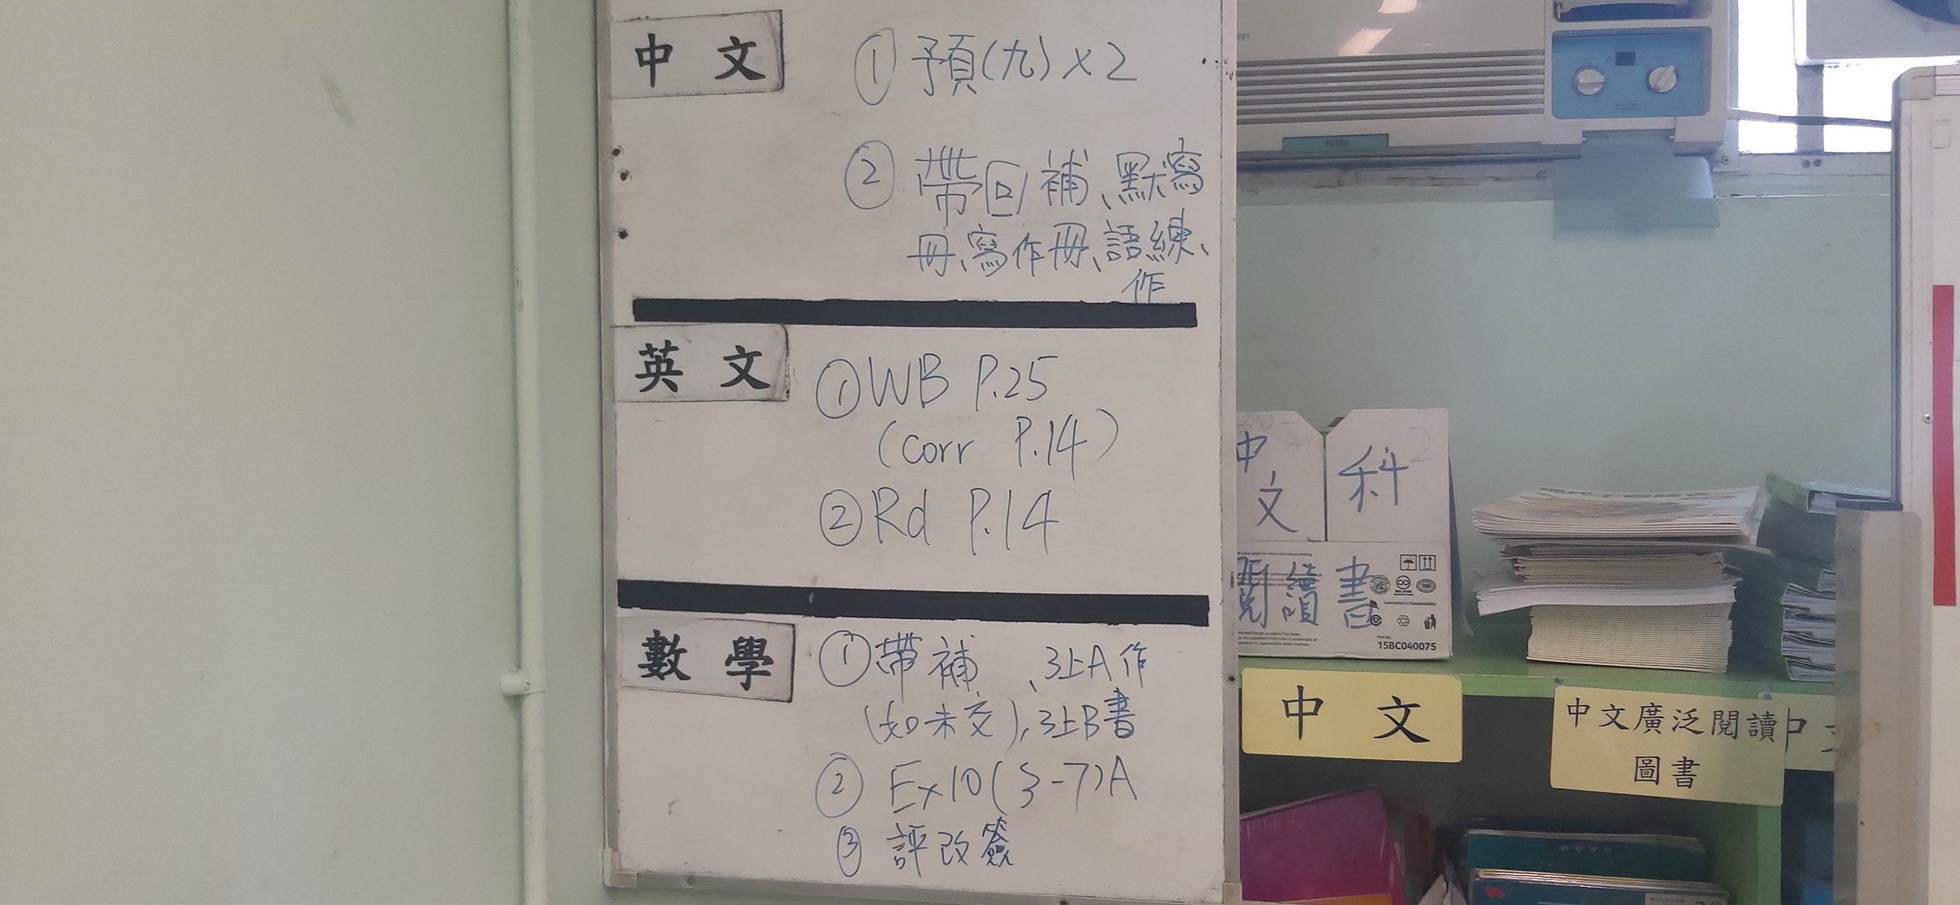 中文
① 預(九)×2
② 帶回補、默寫
冊、寫作冊、語練、
作
英文
① WB P.25
(corr P.14)
② Rd P.14
數學
① 帶補、3上A作
(如未交),3上B書
② Ex10(3-7)A
③ 評改簽
中文
科
閱讀書
15BC040075
中文
中文廣泛閱讀
圖書
中文